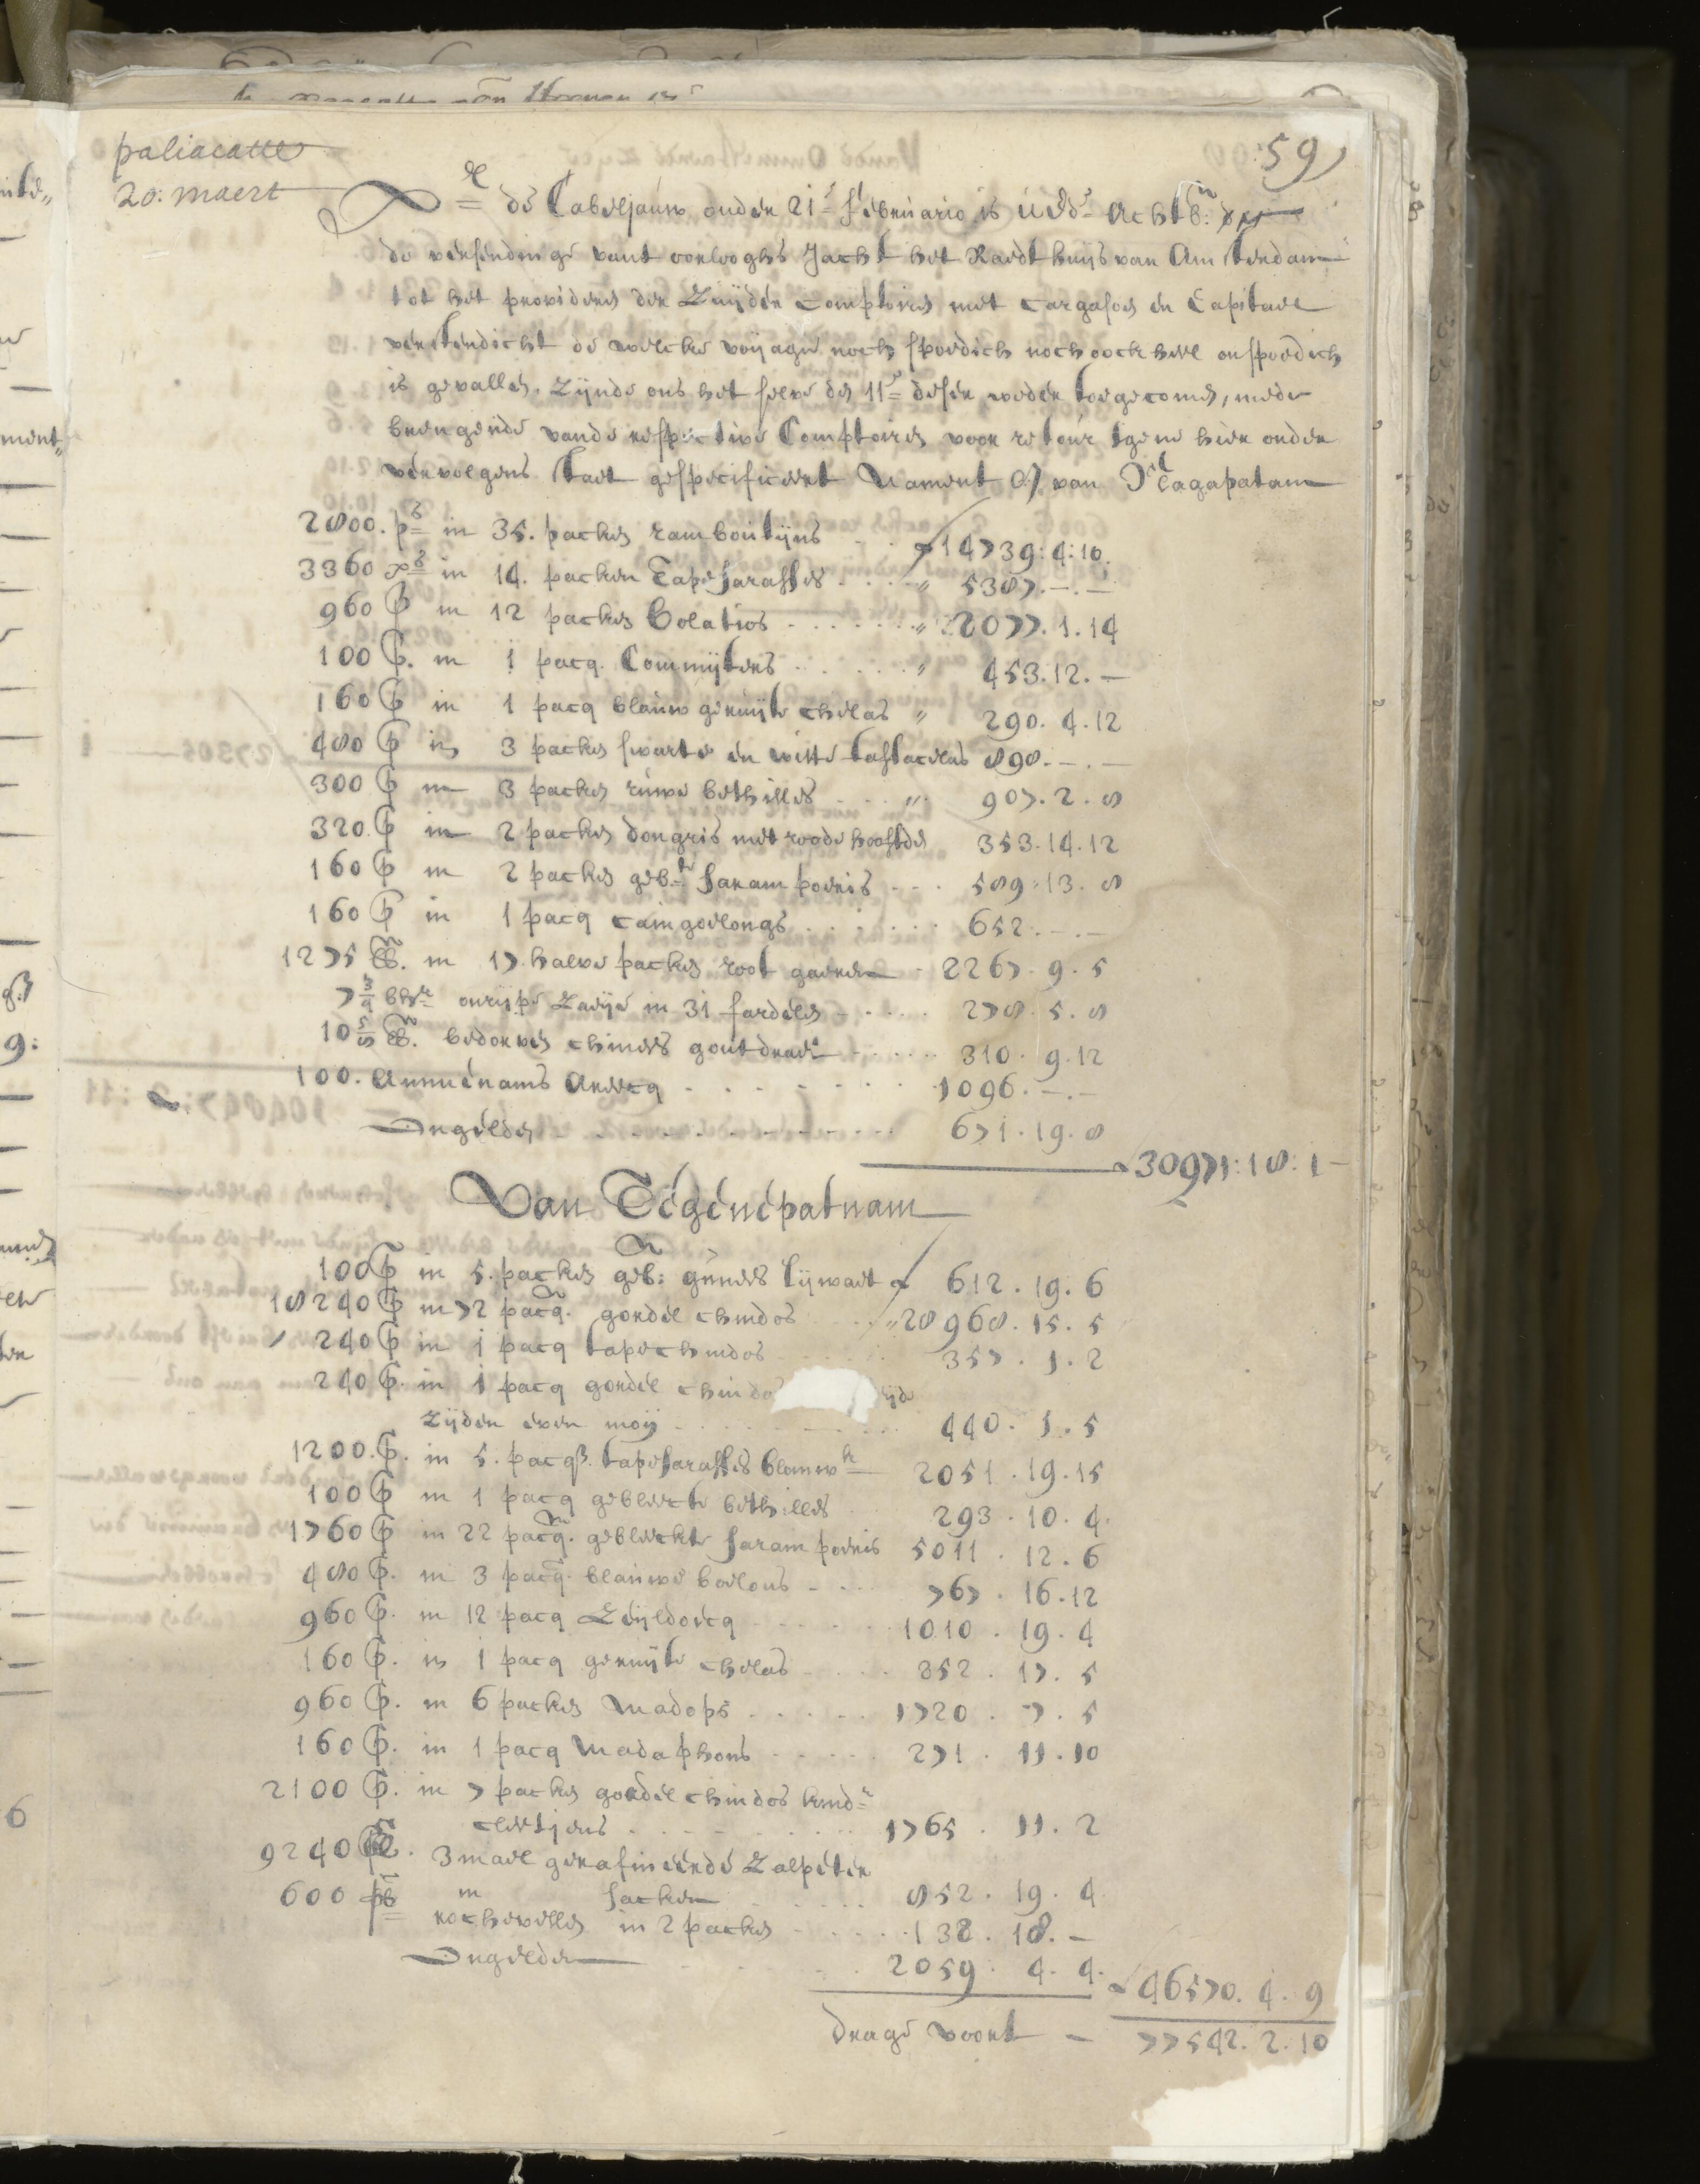 59
paliacatte
20: maert
de Cabeljauw onder 21e februario is u Ed.s Achtb:
de versendinge vant oorlooghs Jacht het Raedthuijs van Amsterdam
tot het provideren der Zuijder Comptoiren met Cargasoen en Capitael
verstendicht de welcke voijagie noch spoedich noch oock heel onspoedich
is gevallen. Zijnde ons het selve den 11e deser weder toegecomen, mede
brengende vande respective Comptoiren voor retour tgene hier onder
vervolgens staet gespecificeert Nament van Nagapatam
2800. ps in 35. packen ramboutijns 14739:4:10.
3360 ps in 14. packen Tapesarasses 5387.—.—
960 p in 12 packen Bolatios 2077.1.14
100 p. in 1 pacq. Commijters 453.12.—
160 p in 1 pacq blauw geruijte chelas 290.4.12
480 p in 3 packen swarte en witte taffacelas 898.—.—
300 p in 3 packen ruwe bethilles 907.2.8
320. p in 2 packen dongris met roode hoofden 353.14.12
160 p in 2 packen geb:te sarampoeris 589:13.8
160 p in 1 pacq caingoelongs 652.—.—
1275 lb. in 17. halve packen root gaeren 2267.9.5
7 3/4 bhr onrijpe Zaeije in 31 fardelen 278.5.8
10 5/8 lb. bedorven chinees goutdraet 310.9.12
100. Annienams Areecq 1096.—.—
Ongelden 671.19.8
30971:18:1
Van Tegenepatnam
100 p in 5. packen geb: guinees Lijwaet 612.19.6
18240 p in 72 pacq. gordel chindos 28968.15.5
240 p in 1 pacq tapechindos 357.1.2
240 p. in 1 pacq gordel chindo
Zijden even moij 440.1.5
1200. p. in 5. pacqs. tapesarasses blauwe 2051.19.15
100 p in 1 pacq gebleecte bethilles 293.10.4.
1760 p in 22 pacq. gebleeckte sarampoeris 5011.12.6
480 p. in 3 pacq. blauwe boelons 767.16.12
960 p. in 12 pacq Zeijldoecq 1010.19.4
160 p. in 1 pacq geruijte chelas 252.17.5
960 p. in 6 packen Madops 1720.7.5
160 p. in 1 pacq Madaphons 271.11.10
2100 p. in 7 packen gordel chindos kindr
cleetjens 1765.11.2
9240 lb. 3 mael gerafineerde Zalpeter
in sacken 852.19.4
600 ps rochevellen in 2 packen 138.18.—
Ongelden 2059.4.4.
46570.4.9
drage voort — 77542.2.10